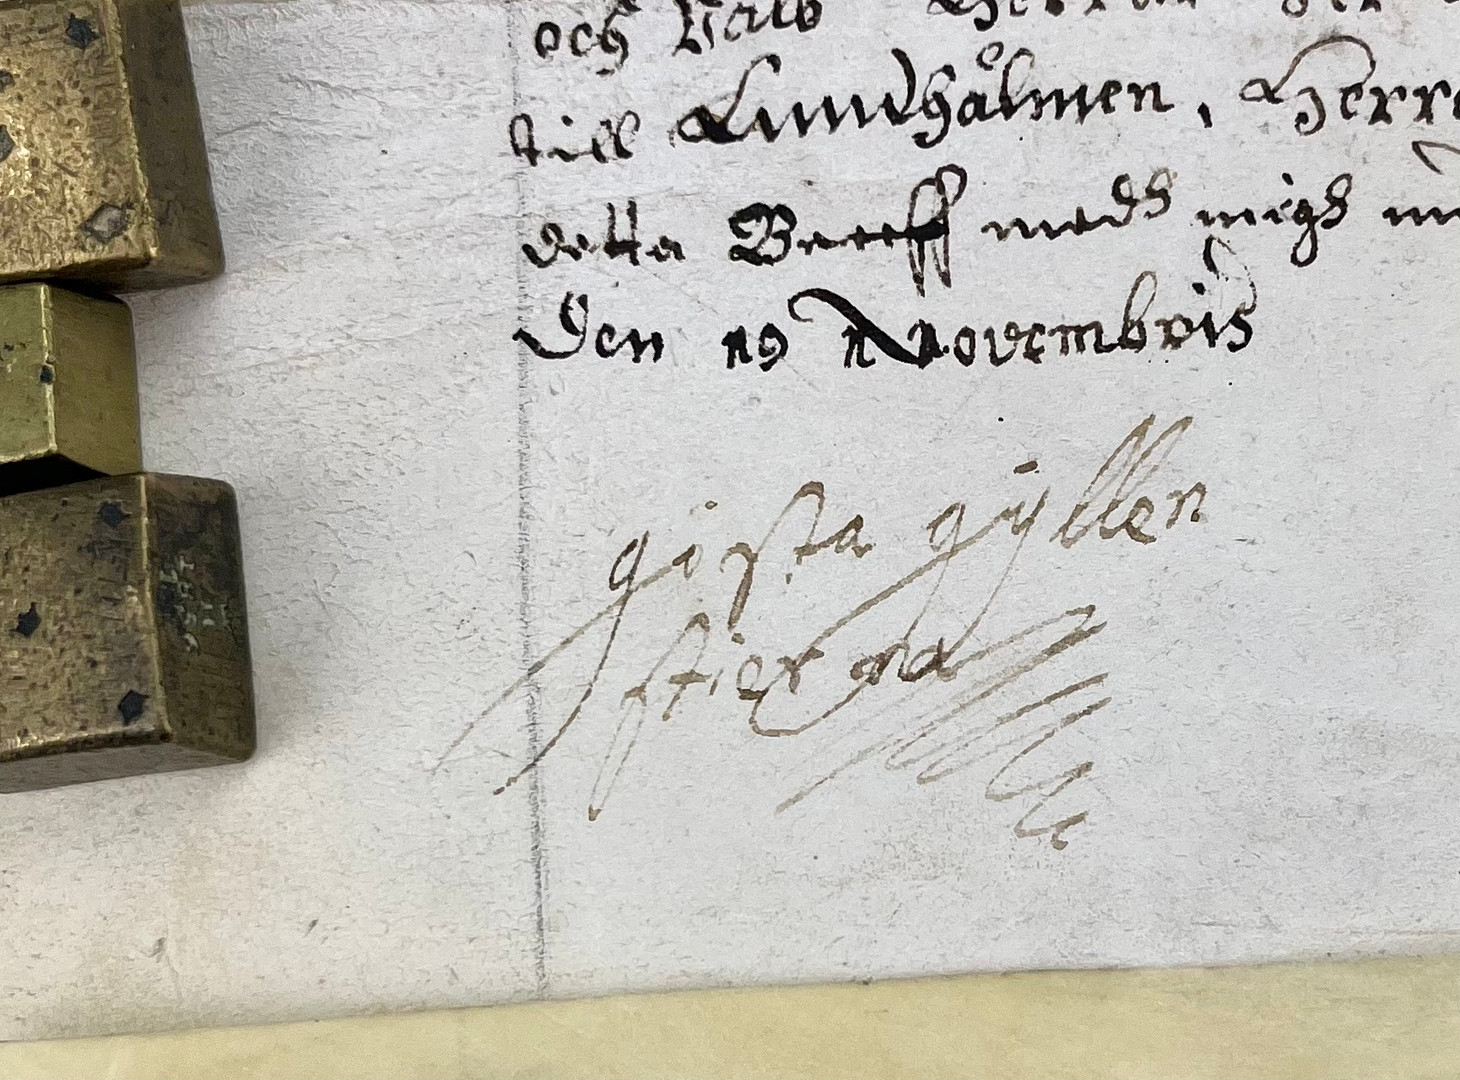 och
till Lundhålmen, Herre
detta Breeff medh migh
Den 19 Novembris
gösta gyllen
stierna